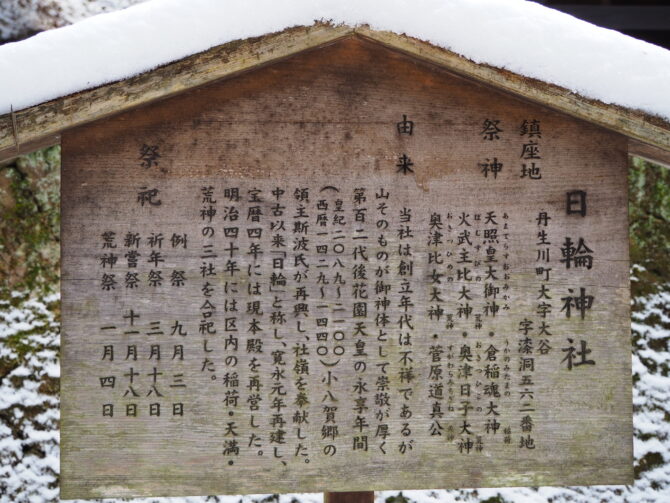 日輪神社
鎮座地 丹生川町大字大谷
字漆洞五六二番地
祭神 天照皇大御神・倉稲魂大神
火武主比大神・奥津日子大神
奥津比女大神・菅原道真公
由来 当社は創立年代は不祥であるが
山そのものが御神体として崇敬が厚く
第百二代後花園天皇の永享年間
(皇紀二〇八九~二一〇〇
西暦一四二九~一四四〇)小八賀郷の
領主斯波氏が再興し、社領を奉献した。
中古以来「日輪」と称し、寛永元年再建し、
宝暦四年には現本殿を再営した。
明治四十年には区内の稲荷・天満・
荒神の三社を合祀した。
祭祀 例祭 九月三日
祈年祭 三月十八日
新嘗祭 十一月十八日
荒神祭 一月四日